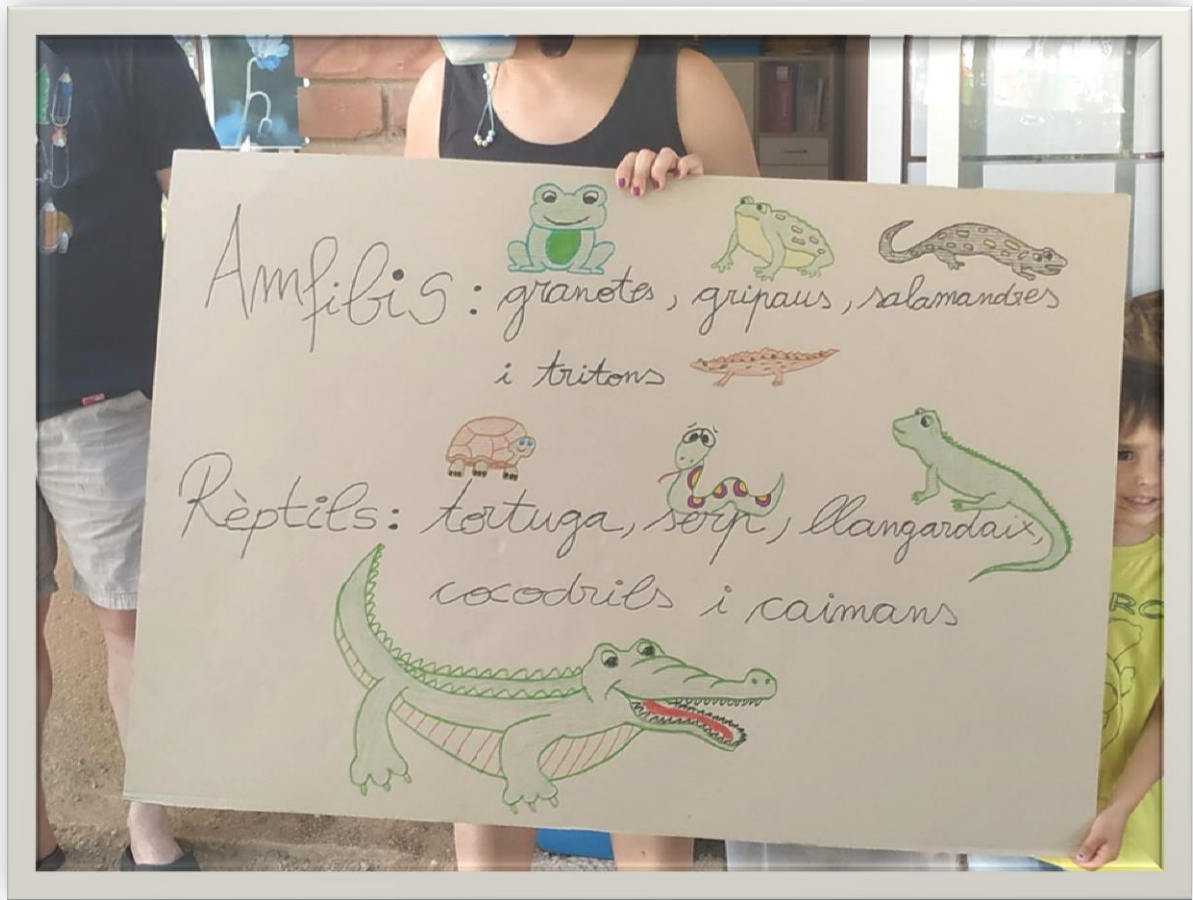 Amfibis: granotes, gripaus, salamandres
i tritons
Rèptils: tortuga, serp, llangardaix,
cocodrils i caimans